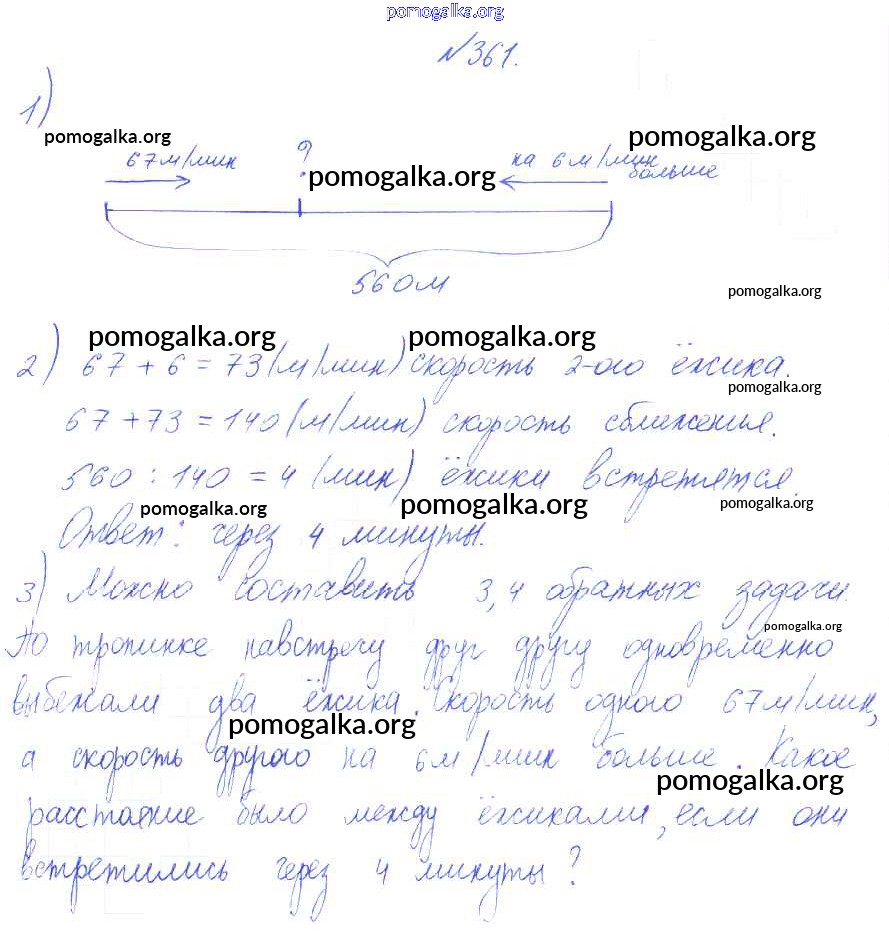 pomogalka.org
№361.
1)
pomogalka.org
pomogalka.org
67 м/мин ? на 6 м/мин больше
pomogalka.org
560 м
pomogalka.org
pomogalka.org pomogalka.org
2) 67 + 6 = 73 (м/мин) скорость 2-ого ёжика.
pomogalka.org
67 + 73 = 140 (м/мин) скорость сближенья.
560 : 140 = 4 (мин) ёжики встретятся.
pomogalka.org pomogalka.org pomogalka.org
Ответ: через 4 минуты.
3) Можно составить 3,4 обратных задачи.
pomogalka.org
По тропинке навстречу друг другу одновременно
выбежали два ёжика. Скорость одного 67 м/мин,
pomogalka.org
а скорость другого на 6 м/мин больше. Какое
pomogalka.org
расстояние было между ёжиками, если они
встретились через 4 минуты?